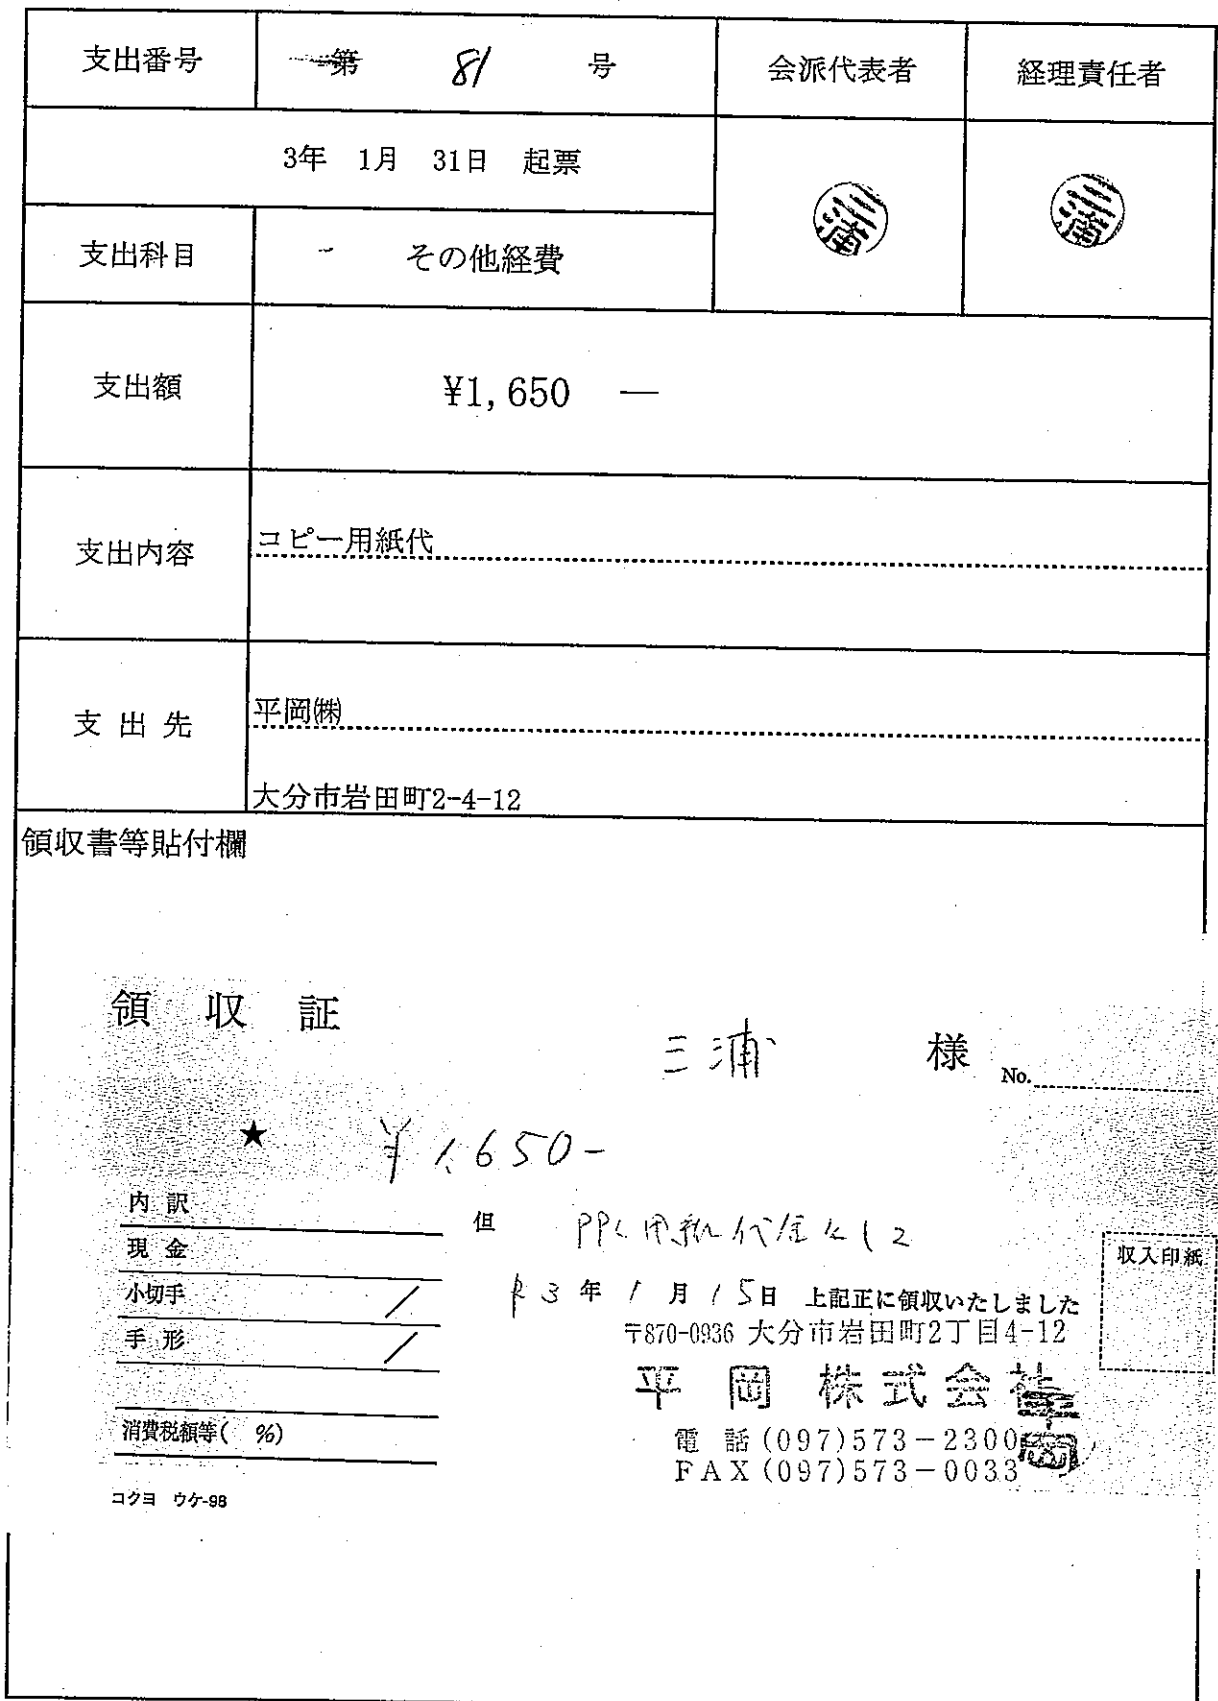 支出番号 第 81 号 会派代表者 経理責任者
3年 1月 31日 起票
三浦 三浦
支出科目 その他経費
支出額 ¥1,650 ―
支出内容 コピー用紙代
支出先 平岡㈱
大分市岩田町2-4-12
領収書等貼付欄
領収証
三浦 様 No.
★ ¥1,650-
内訳
但 PPC用紙代金として
現金
収入印紙
小切手
R3年1月15日 上記正に領収いたしました
手形
〒870-0936 大分市岩田町2丁目4-12
平岡株式会社
平岡
消費税額等( %)
電話(097)573-2300
FAX(097)573-0033
コクヨ ウケ-98